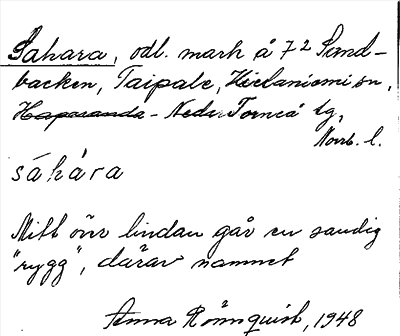 Sahara, odl. mark å 7² Sand-
backen, Taipale, Hietaniemi sn,
Haparanda - Neder Torneå tg,
Norrb. l.
sáhàra
Mitt över lindan går en sandig
"rygg", därav namnet
Anna Rönnquist, 1948